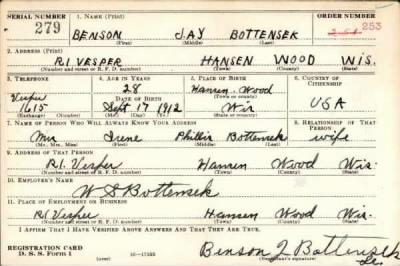 SERIAL NUMBER 1. NAME (Print) ORDER NUMBER
279 BENSON JAY BOTTENSEK 253
(First) (Middle) (Last)
2. ADDRESS (Print)
R.1 VESPER HANSEN WOOD WIS.
(Number and street or R. F. D. number) (Town) (County) (State)
3. TELEPHONE 4. AGE IN YEARS 5. PLACE OF BIRTH 6. COUNTRY OF CITIZENSHIP
Vesper 28 Hansen - Wood
DATE OF BIRTH (Town or county)
1615 Sept 17 1912 Wis USA
(Exchange) (Number) (Mo.) (Day) (Yr.) (State or country)
7. NAME OF PERSON WHO WILL ALWAYS KNOW YOUR ADDRESS 8. RELATIONSHIP OF THAT PERSON
Mrs Irene Bottensek wife
(Mr., Mrs., Miss) (First) (Middle) (Last)
9. ADDRESS OF THAT PERSON
R1. Vesper Hansen Wood Wis.
(Number and street or R. F. D. number) (Town) (County) (State)
10. EMPLOYER'S NAME
W S Bottensek
11. PLACE OF EMPLOYMENT OR BUSINESS
R1 Vesper Hansen Wood Wis.
(Number and street or R. F. D. number) (Town) (County) (State)
I AFFIRM THAT I HAVE VERIFIED ABOVE ANSWERS AND THAT THEY ARE TRUE.
REGISTRATION CARD
D. S. S. Form 1 (over) Benson J Bottensek
(Registrant's signature)